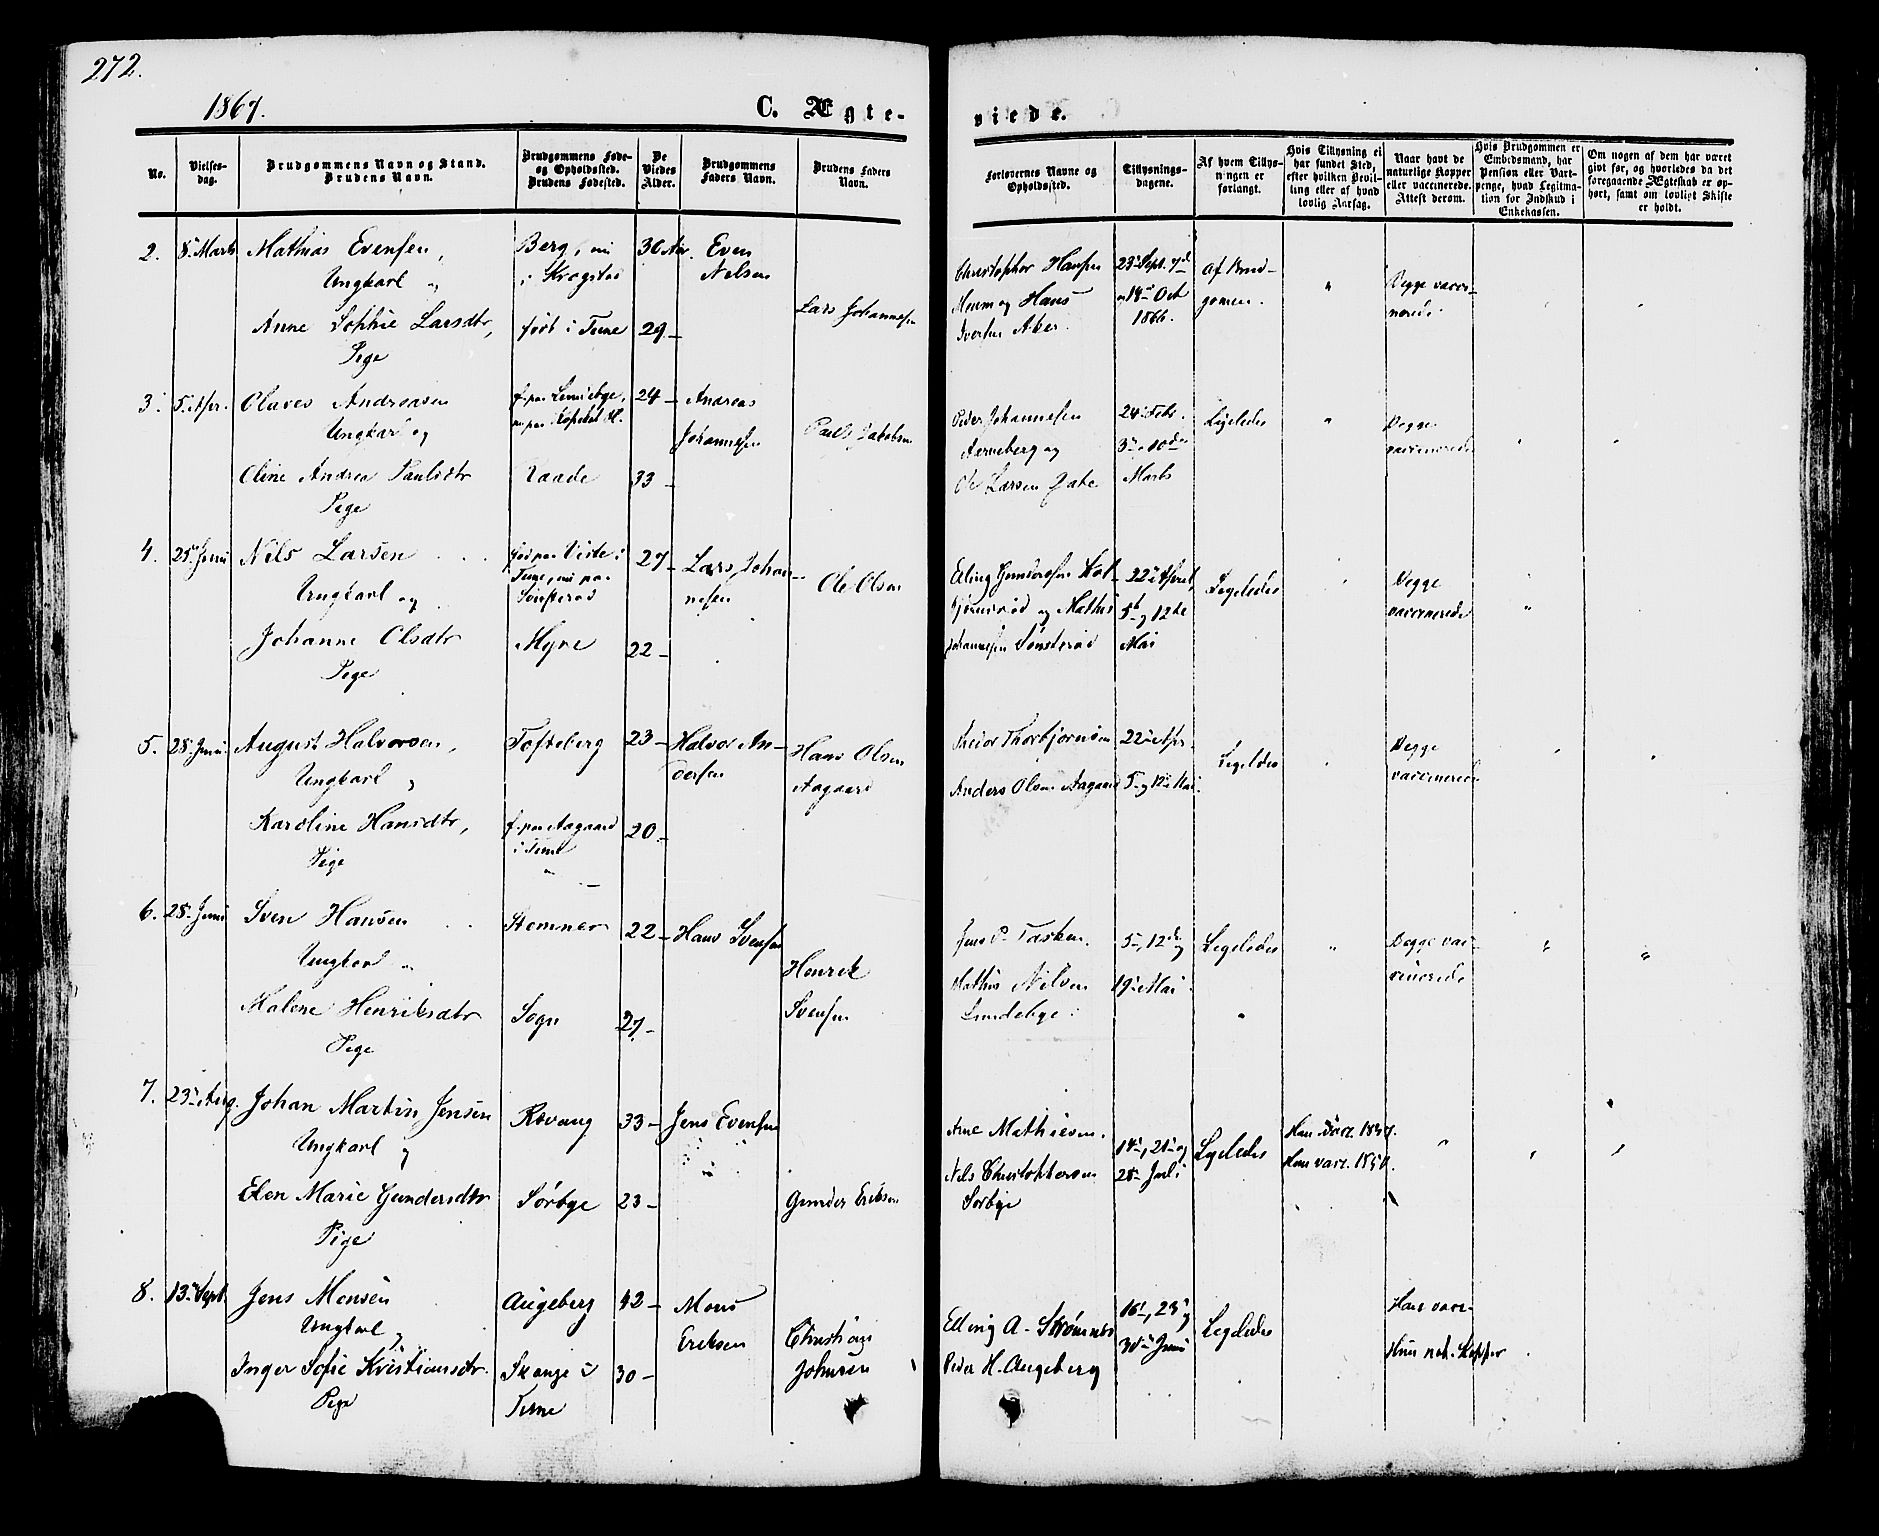 272.
1867.
C. Ægte-
viede.
No.
Vielses-
dag.
Brudgommens Navn og Stand.
Brudens Navn.
Brudgommens Føde-
og Opholdssted.
Brudens Fødested.
De
Viedes
Alder.
Brudgommens
Faders Navn.
Brudens Faders
Navn.
Forlovernes Navne og
Opholdssted.
Tillysnings-
dagene.
Af hvem Tillys-
ningen er
forlangt.
Hvis Tillysning ei
har fundet Sted
efter hvilken Bevil-
ling eller af hvad
lovlig Aarsag.
Naar havt de
naturlige Kopper
eller vaccinerede.
Attest derom.
Hvis Brudgommen er
Embedsmand, har
Pension eller Vart-
penge, hvad Legitima-
tion for Indskud i
Enkekassen.
Om nogen af dem har været
gift før, og hvorledes da det
foregaaende Ægteskab er op-
hørt, samt om lovligt Skifte
er holdt.
2. 8. Marts Mathias Evensen, Berg, nu 30 Aar. Even
Ungkarl og i Krogstad Nelsen
Lars Johannesen
Anne Sophie Larsdtr, født i Tune 29 –
Pige
Christopher Hansen 23 Sept. 7de Af Brud- " Begge vacci-
og Hans og 14de Oct gomen. nerede
Iversen Aker. 1866.
3. 5. Apr. Olaves Andreasen 24 – Andreas
Ungkarl og Johannesen Pauls Jakobsen
Oline Andrea Paulsdtr Raade 33 –
Pige
Peder Johannesen 24 Febr. Ligeledes " Begge
og 3 – 10de vaccinerede
Ole Larsen Marts
4. 25 Juni Nils Larsen fød paa Viste i 27 – Lars Johan-
Ungkarl og Tune, nu paa nesen Ole Olsen
Sønsterød
Johanne Olsdtr Myre 22 –
Pige
Edling Gundersen 22 April, Ligeledes Begge
og Mathis 5te og 12te vaccinerede
Johannesen Sønsterød Mai
5. 28. Juni August Halvorsen, Tofteberg 23 – Halvor An- Hans Olsen
Ungkarl og dersen Aagaard
Karoline Hansdtr, f. paa Aagaard 20 –
Pige i Tune
Peder Thorbjørnsen 22 Apr. Ligeledes Begge
Anders Olsen Aagaard 5 – og 12 – Mai vaccinerede
6. 28. Juni Sven Hansen Stomner 22 – Hans Svensen
Ungkarl og Henrik
Malene Henriksdtr Sogn 27 – Svensen
Pige
Jens P. Tasken. 5 –, 12 de og Ligeledes " Begge vac-
Mathis Nilsen 19 – Mai cinerede
Lundebye
7. 23 Aug. Johan Martin Jensen Rovang 33 – Jens Evensen
Ungkarl og
Elen Marie Gundersdtr Sørbye 23 – Gunder Eriksen
Pige
Arne Mathiesen. 14 –, 21 – og Ligeledes Han vacc. 1837.
Nils Christoffersen 28 – Juli Hun vacc. 1850.
Sørbye
8. 13 Sept. Jens Monsen Augeberg 42 – Mons
Ungkarl og Eriksen Christian
Inger Sofie Kristiansdtr. Skange i 30 – Johnsen
Pige Tune
Edling A. Strømnes 16, 23 og Ligeledes Han vacc.
Peder H. Augeberg 30 – Juni Hun nat. Kopper.